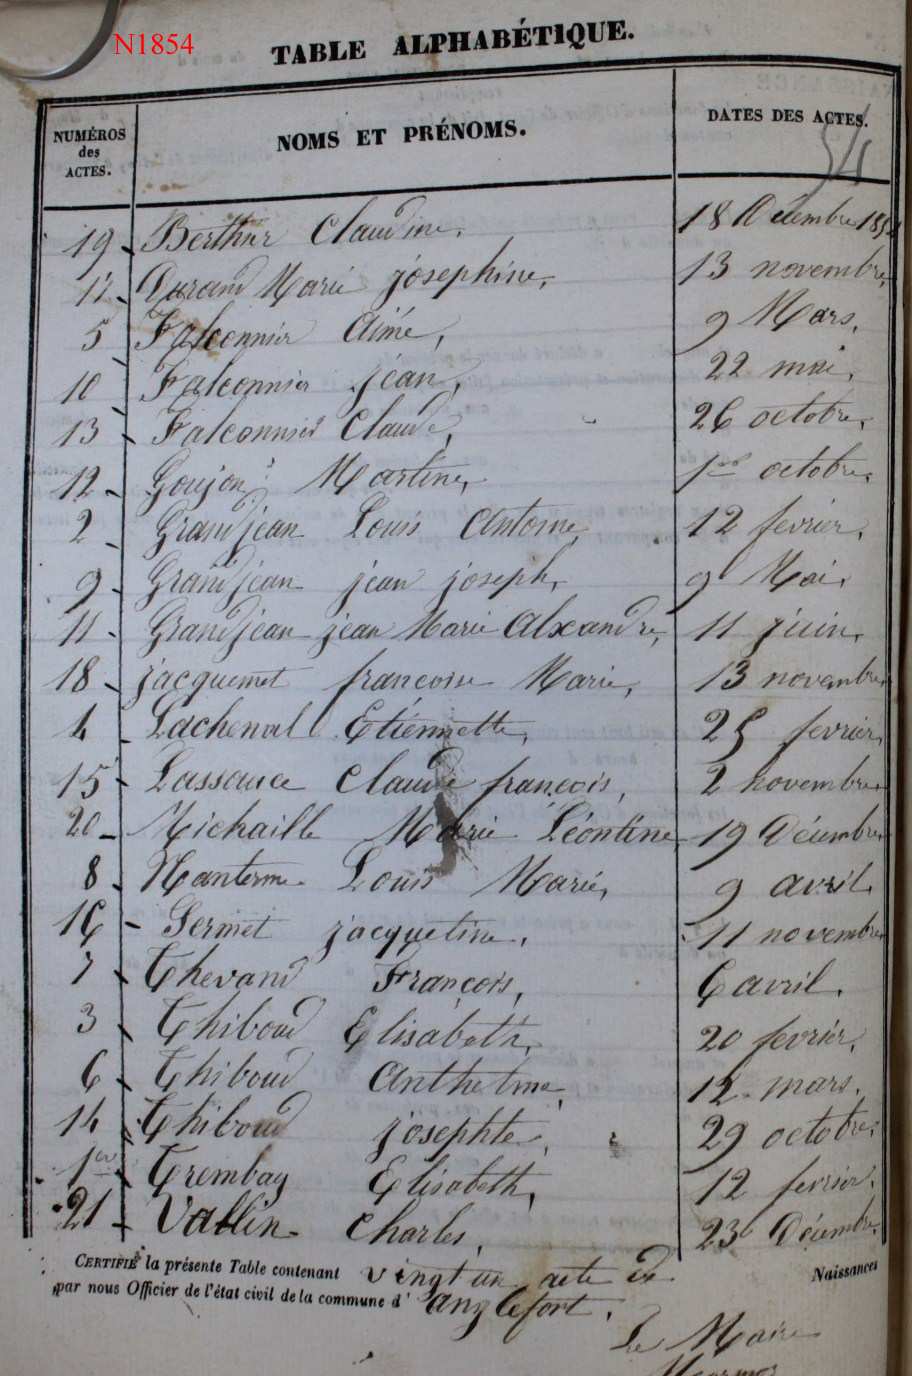 N1854
TABLE ALPHABÉTIQUE.
NUMÉROS des ACTES. NOMS ET PRÉNOMS. DATES DES ACTES.
54
19 Berthur Claudine. 18 Décembre 185
17 Durand Marie joséphine, 13 novembre,
5 Falconnier Aimé, 9 Mars,
10 Falconnier jéan, 22 mai,
13 Falconnier Claude, 26 octobre,
12 Goujon Martine, 1er octobre,
2 Grandjean Louis Antoine, 12 fevrier,
9 Grandjean jean joseph, 9 Mai,
11 Grandjean jean Marie Alexandre, 11 juin,
18 jacquemet francoise Marie, 13 novembre,
4 Lachenal Etiennette, 25 fevrier,
15 Lassauce Claude françois, 2 novembre,
20 Michaille Marie Léontine, 19 Décembre,
8 Nanterme Louis Marie, 9 avril,
16 Sermet jacqueline, 11 novembre,
7 Thevand François, 6 avril,
3 Thiboud Elisabeth, 20 fevrier,
6 Thiboud Anthelme, 12 mars,
14 Thiboud josephte, 29 octobre,
1er Trembay Elisabeth, 12 fevrier,
21 Vallin Charles, 23 Décembre,
CERTIFIÉ la présente Table contenant vingt un acte de Naissances
par nous Officier de l'état civil de la commune d' anglefort.
Le Maire